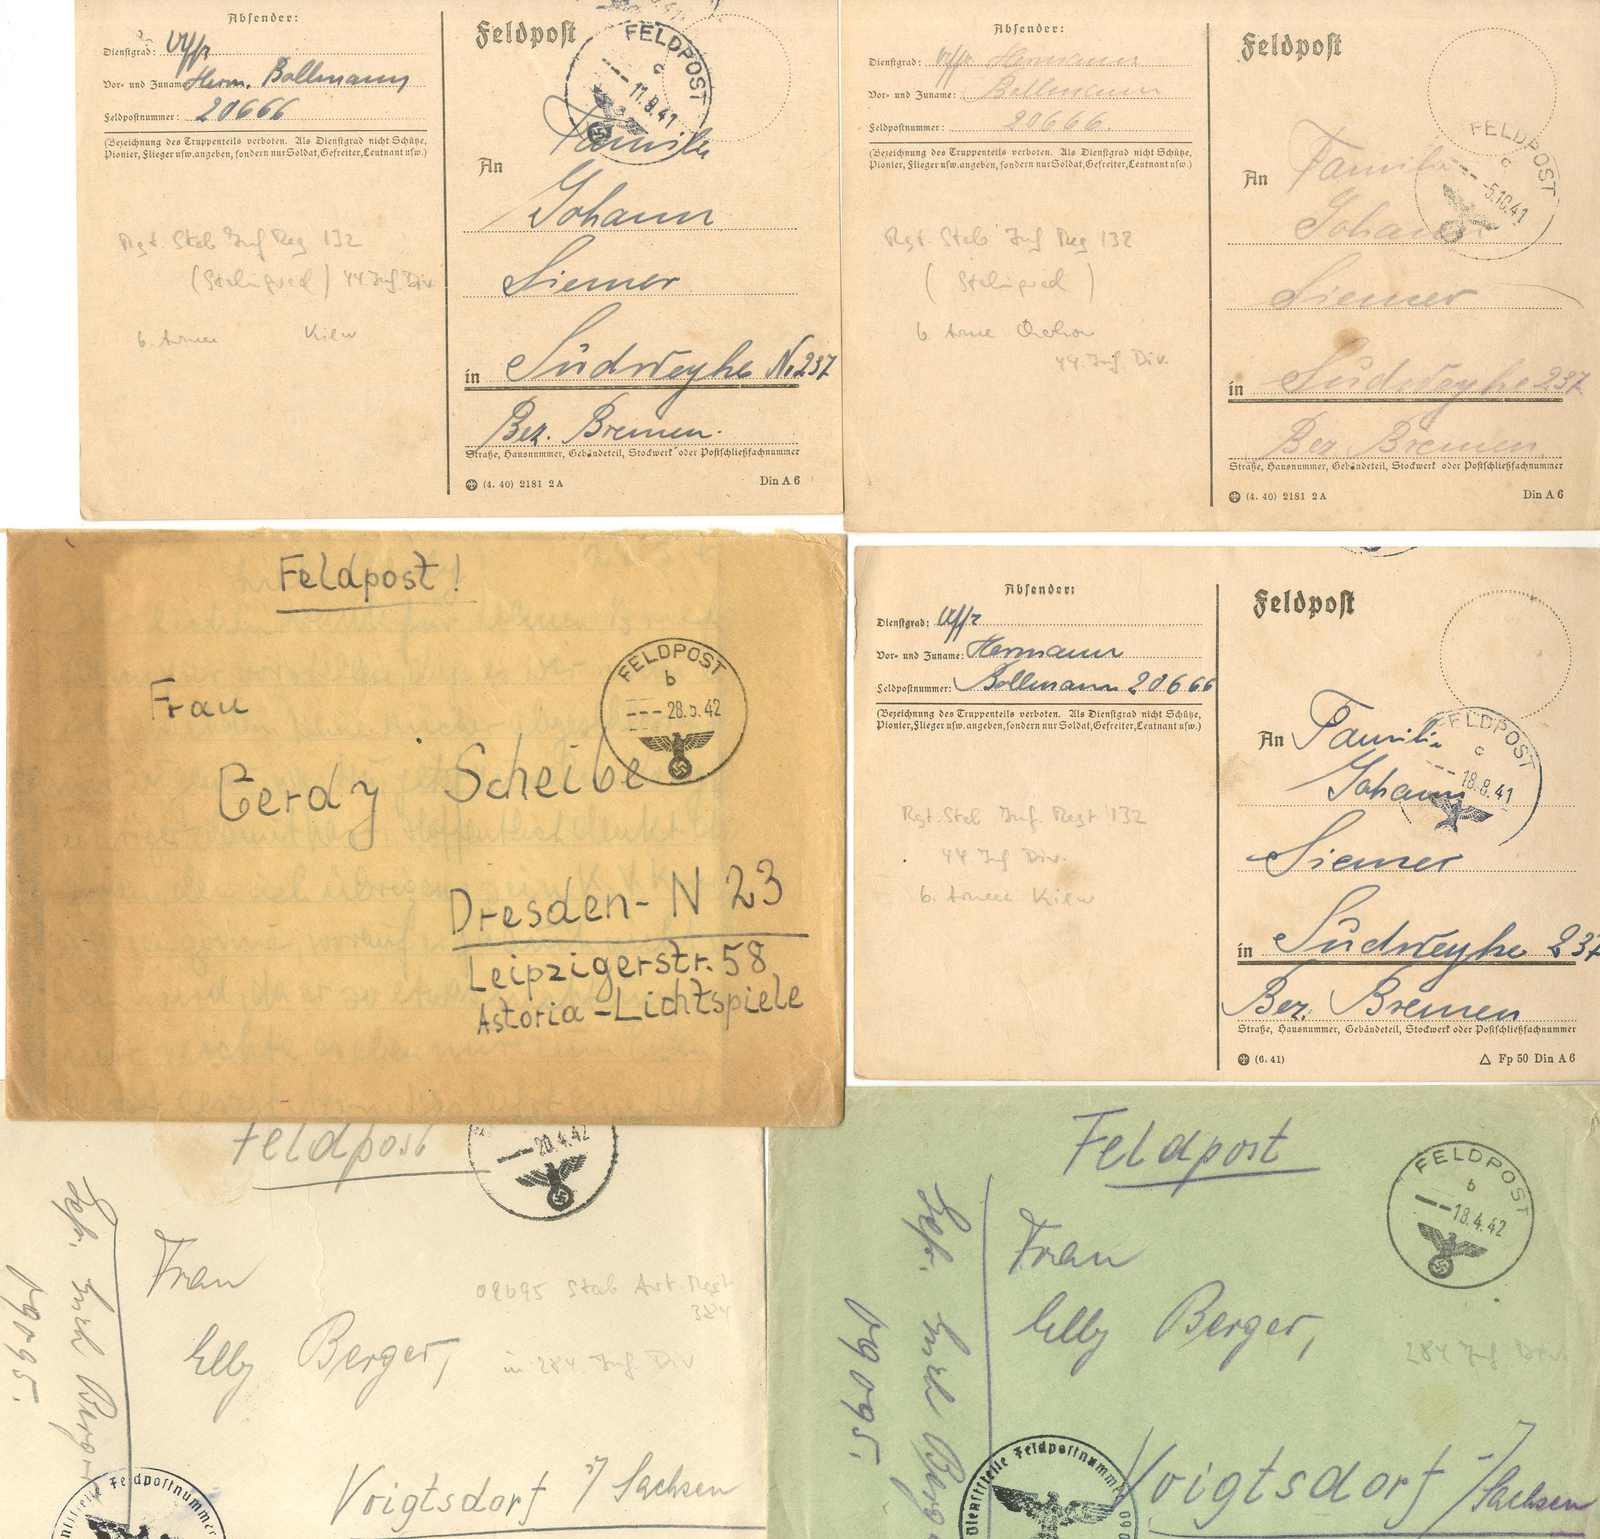 Absender:
Dienstgrad: Uffz
Vor- und Zuname: Herm. Bollmann
Feldpostnummer: 20666
(Bezeichnung des Truppenteils verboten. Als Dienstgrad nicht Schütze,
Pionier, Flieger usw. angeben, sondern nur Soldat, Gefreiter, Leutnant usw.)
Rgt. Stab Inf Reg 132
(Stalingrad) 44 Inf Div
6. Armee Kiew
Feldpost
FELDPOST
c
11.9.41
An Familie
Johann
Siemer
in Südweyhe N. 237
Bez. Bremen.
Straße, Hausnummer, Gebäudeteil, Stockwerk oder Postschließfachnummer
(4. 40) 2181 2 A
Din A 6
Absender:
Dienstgrad: Uffz Hermann
Vor- und Zuname: Bollmann
Feldpostnummer: 20666.
(Bezeichnung des Truppenteils verboten. Als Dienstgrad nicht Schütze,
Pionier, Flieger usw. angeben, sondern nur Soldat, Gefreiter, Leutnant usw.)
Rgt. Stab Inf Reg 132
(Stalingrad)
6. Armee
44. Inf. Div.
Feldpost
FELDPOST
c
-5.10.41
An Familie
Johann
Siemer
in Südweyhe 237
Bez. Bremen.
Straße, Hausnummer, Gebäudeteil, Stockwerk oder Postschließfachnummer
(4. 40) 2181 2 A
Din A 6
Feldpost!
FELDPOST
b
28.5.42
Frau
Gerdy Scheibe
Dresden-N 23
Leipzigerstr. 58
Astoria-Lichtspiele
Absender:
Dienstgrad: Uffz
Vor- und Zuname: Hermann
Feldpostnummer: Bollmann 20666
(Bezeichnung des Truppenteils verboten. Als Dienstgrad nicht Schütze,
Pionier, Flieger usw. angeben, sondern nur Soldat, Gefreiter, Leutnant usw.)
Rgt. Stab Inf. Regt 132
44 Inf Div.
6. Armee Kiew
Feldpost
FELDPOST
c
18.8.41
An Familie
Johann
Siemer
in Südweyhe 237
Bez. Bremen
Straße, Hausnummer, Gebäudeteil, Stockwerk oder Postschließfachnummer
(6. 41)
Fp 50 Din A 6
Feldpost
20.4.42
Frau
Elly Berger,
Voigtsdorf i/Sachsen
09095 Stab Art. Regt
384
in 284. Inf Div
Gefr. Berger
09095.
Feldpostnummer
Feldpost
FELDPOST
b
18.4.42
Frau
Elly Berger,
Voigtsdorf i/Sachsen
284 Inf Div.
Gefr. Berg
09095.
Dienststelle Feldpostnummer 090